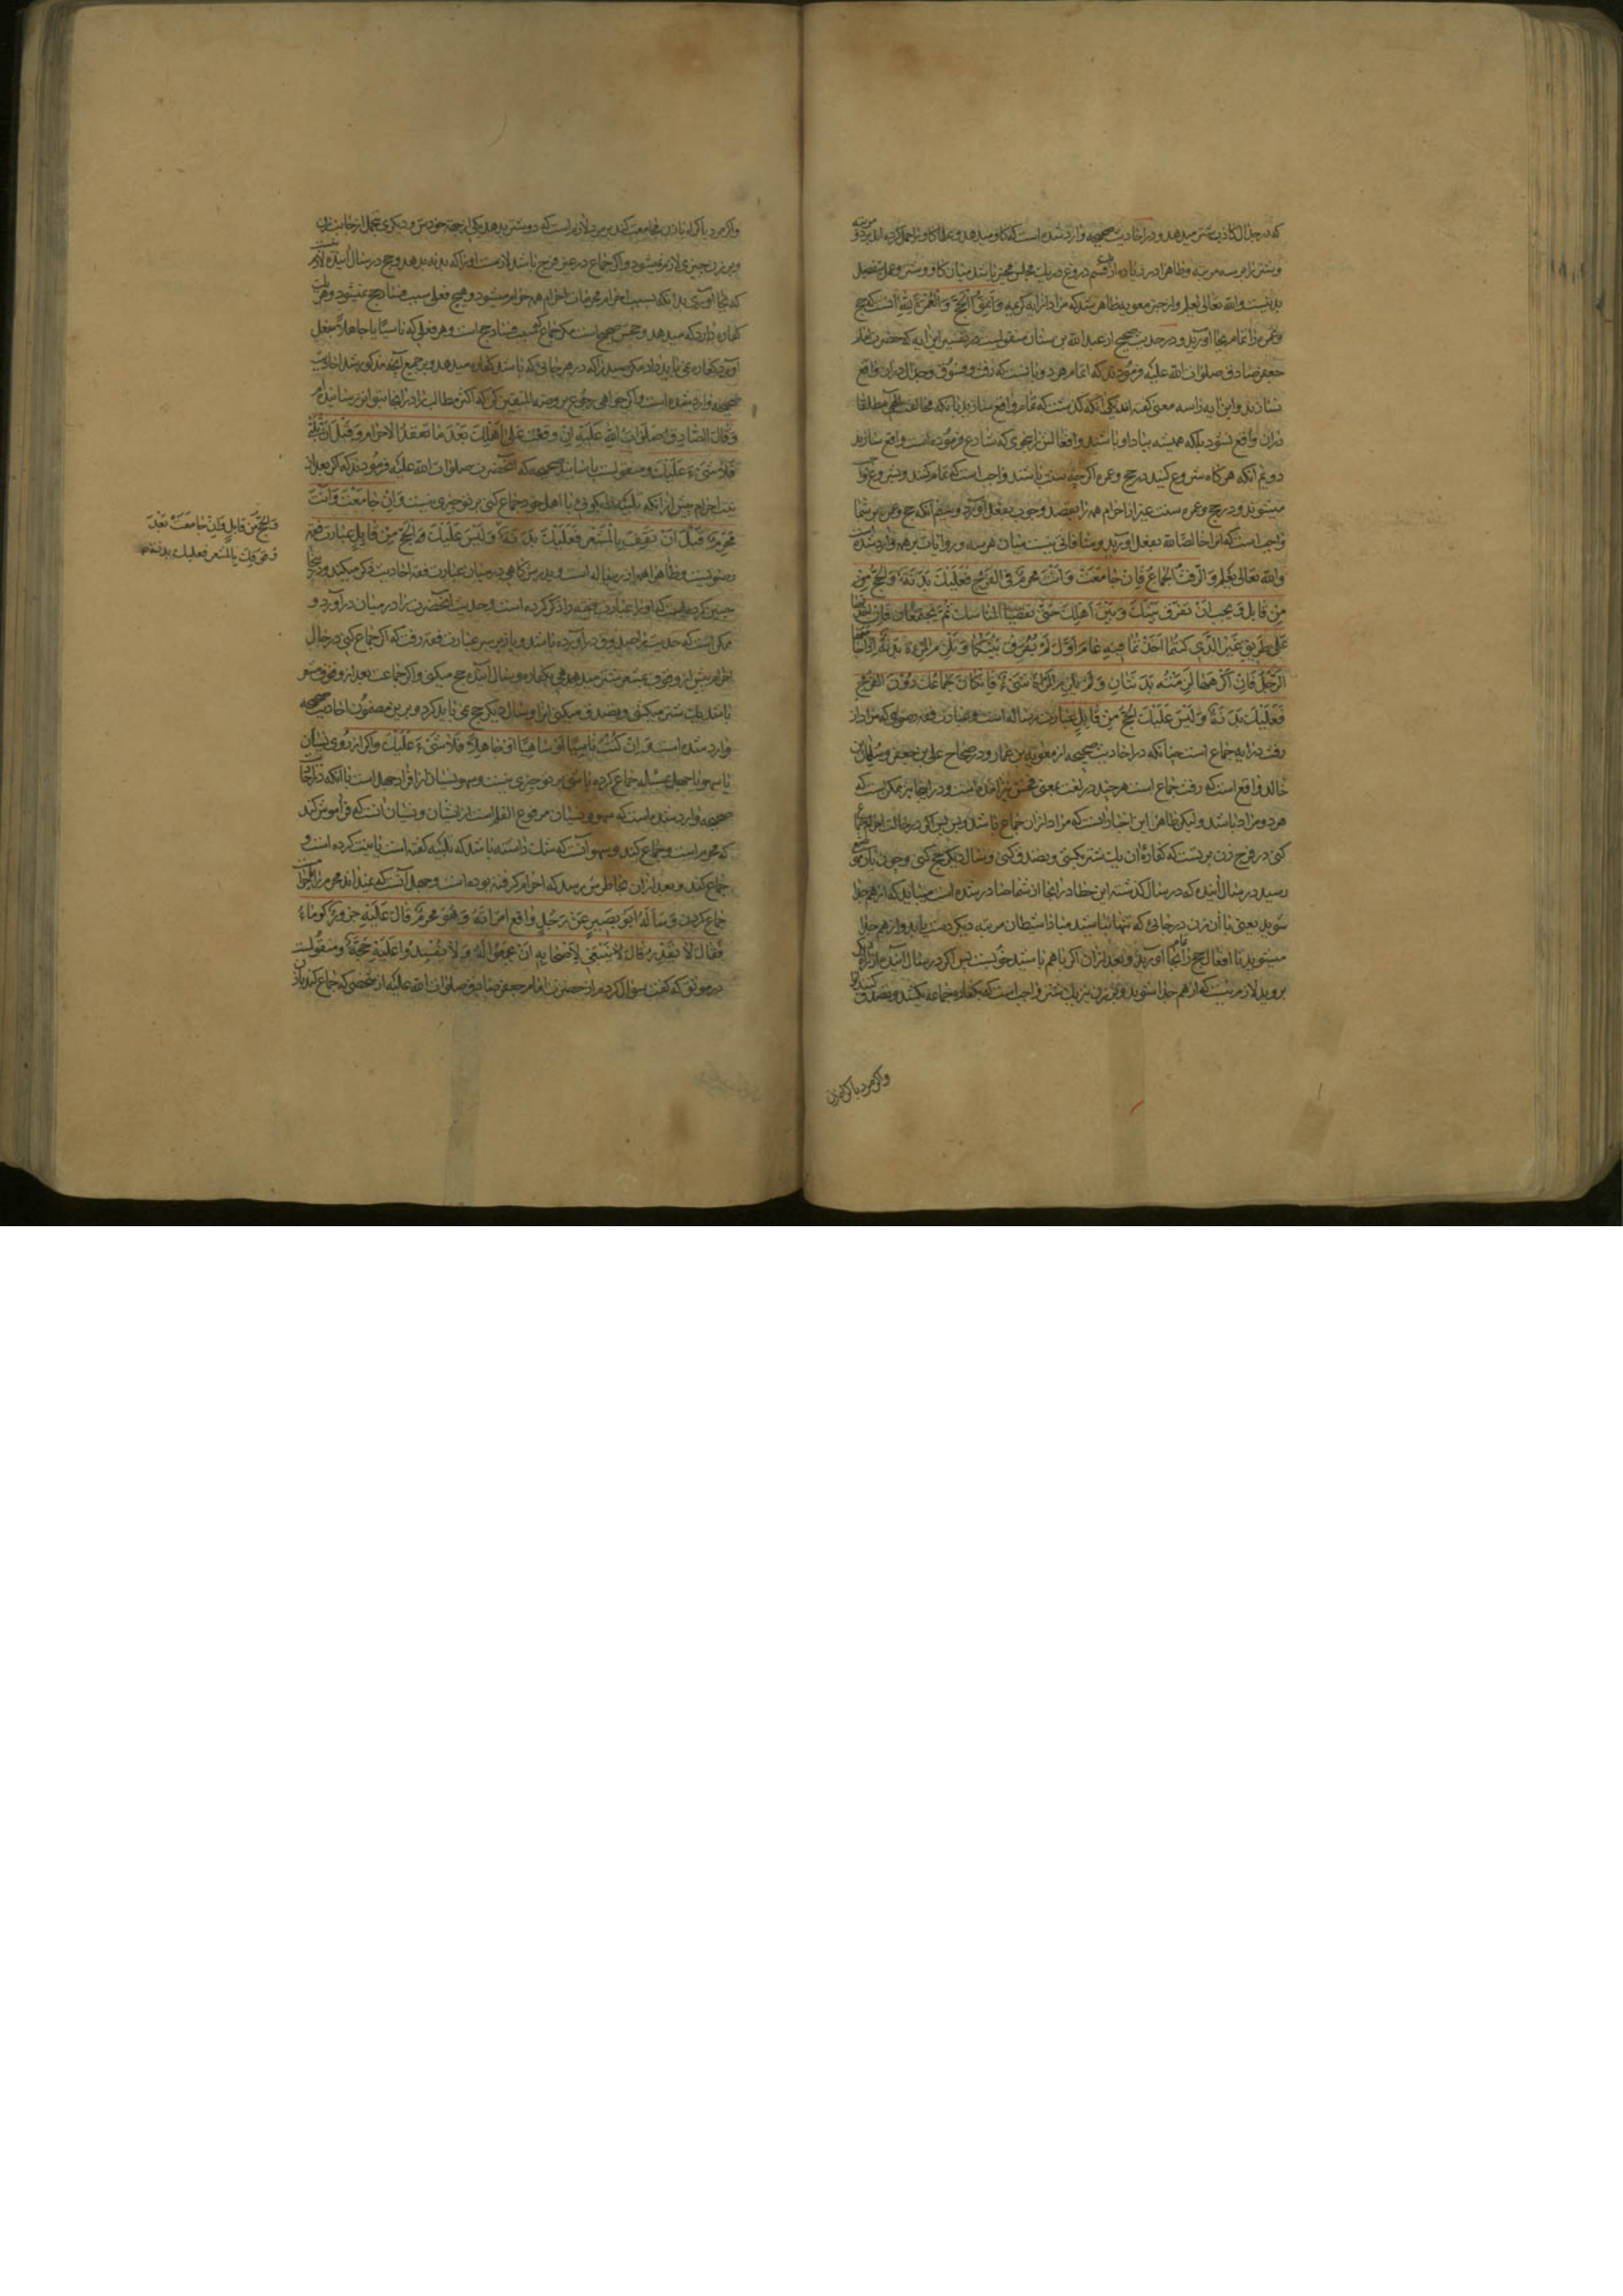 که در جدال کاذب شتر میدهد و در احادیث صحیحه وارد شده است که کاو میدهد و علما کاو را حمل کرده اند بر دو مرتبه
و شتر را بر سه مرتبه و ظاهرا در زیاده از قسم دروغ در یک مجلس مخیر باشد میان کاو و شتر و عمل بتفصیل
بد نیست والله تعالی یعلم و از خبر معویه ظاهر شد که مراد از آیه کریمه وَاَتِمُّوا الْحَجَّ وَالْعُمْرَةَ لِلّٰهِ آنست که حج
و عمره را تمام بجا آورید و در حدیث صحیح از عبد الله بن سنان منقولست در تفسیر این آیه که حضرت امام
جعفر صادق صلوات الله علیه فرمودند که اتمام هر دو بآنست که رفث و فسوق و جدال در آن واقع
نسازید و این آیه را سه معنی کفته اند یکی آنکه کذشت که تمام واقع سازید بآنکه مخالفت الهی مطلقا
در آن واقع نشود بلکه همیشه بیاد او باشند و افعالش را بنحوی که شارع فرموده است واقع سازید
دویم آنکه هر کاه شروع کنید در حج و عمره اکر چه سنت باشد واجب است که تمام کنند و بشروع واجب
میشوند و در حج و عمره سنت غیر از احرام همه را بقصد وجوب بفعل آورد و سیم آنکه حج و عمره بر شما
واجب است که آنرا خالصا لله بفعل آورید و منافاتی نیست میان هر سه و روایات بر همه وارد شده است
والله تعالی یعلم وَالرَّفَثُ الْجِمَاعُ فَاِنْ جَامَعْتَ وَاَنْتَ مُحْرِمٌ فِی الْفَرْجِ فَعَلَیْكَ بَدَنَةٌ وَالْحَجُّ مِنْ
مِنْ قَابِلٍ وَیَجِبُ اَنْ یُفَرَّقَ بَیْنَكَ وَبَیْنَ اَهْلِكَ حَتّٰی تَقْضِیَا الْمَنَاسِكَ ثُمَّ تَجْتَمِعَانِ فَاِنْ اَخَذْتُمَا
عَلٰی طَرِیْقٍ غَیْرِ الَّذِی کُنْتُمَا اَخَذْتُمَا فِیْهِ عَامَ اَوَّلَ لَمْ یُفَرَّقْ بَیْنَکُمَا وَتَلْزَمُ الْمَرْءَةَ بَدَنَةٌ اِذَا جَامَعَهَا
الرَّجُلُ فَاِنْ اَکْرَهَهَا لَزِمَتْهُ بَدَنَتَانِ وَلَمْ یَلْزَمِ الْمَرْاَةَ شَیْءٌ فَاِنْ کَانَ جِمَاعُكَ دُوْنَ الْفَرْجِ
فَعَلَیْكَ بَدَنَةٌ وَلَیْسَ عَلَیْكَ الْحَجُّ مِنْ قَابِلٍ عبارت رساله است و عبارت فقه رضوی که مراد از
رفث در آیه جماع است چنانکه در احادیث صحیحه از معویة بن عمار و در صحاح علی بن جعفر و سلیمان بن
خالد واقع است که رفث جماع است هر چند در لغت بمعنی فحش نیز آمده است و در اینجا نیز ممکن است که
هر دو مراد باشد و لیکن ظاهر این اخبار آنست که مراد از آن جماع باشد و بس پس اکر در حالت احرام جماع
کنی در فرج زن بر تست که کفاره آن یک شتر بکشی و تصدق کنی و سال دیکر حج کنی و چون بآن موضع
رسید در سال آینده که در سال کذشته این خطا در اینجا از شما صادر شده است میباید که از هم جدا
شوید یعنی با آن زن در جائی که تنها نباشید مبادا شیطان مرتبه دیکر دست یابد و از هم جدا
میشوید تا افعال حج را تمام بجا آورید و بعد از آن اکر با هم باشید خوبست پس اکر در سال آینده از راه دیکر
بروید لازم نیست که از هم جدا شوید و بر زن نیز یک شتر واجب است که بکفاره جماع بکشد و تصدق کند
واکر مرد باکراه زن
واکر مرد باکراه با زن مجامعت کند بر مرد لازم است که دو شتر بدهد یکی از جهة خودش و دیکری بتحمل از جانب زن
و بر زن چیزی لازم نمیشود و اکر جماع در غیر فرج باشد لازمست او را که بدنه بدهد و حج در سال آینده لازم نیست
که بجا آوری بدانکه بسبب احرام محرمات احرام همه حرام میشود و هیچ فعلی سبب فساد حج نمیشود و هر یک
کفاره دارد که میدهد و حجش صحیح است مکر جماع که سبب فساد حج است و هر فعلی که ناسیا یا جاهلا بفعل
آورد کفاره نمی باید داد مکر صید را که در هر حالی که باشد کفاره میدهد و بر جمیع آنچه مذکور شد احادیث
صحیحه وارد شده است و اکر خواهی رجوع بروضة المتقین کن که اکثر مطالب را در آنجا بتواتر رسانیده ام
وَقَالَ الصَّادِقُ صَلَوَاتُ اللّٰهِ عَلَیْهِ اِنْ وَقَعْتَ عَلٰی اَهْلِكَ بَعْدَ مَا تَعْقِدُ الْاِحْرَامَ وَقَبْلَ اَنْ تُلَبِّیَ
فَلَا شَیْءَ عَلَیْكَ و منقولست باسانید صحیحه که آنحضرت صلوات الله علیه فرمودند که اکر بعد از
نیت احرام پیش از آنکه تلبیه را بکوئی با اهل خود جماع کنی بر تو چیزی نیست وَاِنْ جَامَعْتَ وَاَنْتَ
مُحْرِمٌ قَبْلَ اَنْ تَقِفَ بِالْمَشْعَرِ فَعَلَیْكَ بَدَنَةٌ وَلَیْسَ عَلَیْكَ الْحَجُّ مِنْ قَابِلٍ عبارت فقه
رضویست و ظاهرا هم از رساله است و پدرش کاهی در میان عبارت فقه احادیث ذکر میکند و اینجا
چنین کرده است که اول عبارت فقه را ذکر کرده است و حدیث آنحضرت را در میان در آورد و
ممکن است که حدیث را صدوق در آورده باشد و باز بر سر عبارت فقه رفت که اکر جماع کنی در حال
احرام پیش از وقوف بمشعر شتر میدهی بکفاره و سال آینده حج میکنی و اکر جماعت بعد از وقوف مشعر
باشد یک شتر میکشی و تصدق میکنی آنرا و سال دیکر حج نمی باید کرد و بر این مضمون احادیث صحیحه
وارد شده است وَاِنْ کُنْتَ نَاسِیًا اَوْ سَاهِیًا اَوْ جَاهِلًا فَلَا شَیْءَ عَلَیْكَ و اکر از روی نسیان
یا سهو یا جهل مسئله جماع کرده باشی بر تو چیزی نیست و سهو و نسیان از افراد جهل است با آنکه در احادیث
صحیحه وارد شده است که سهو و نسیان مرفوع القلم است از ایشان و نسیان آنست که فراموش کند
که محرم است و جماع کند و سهو آنست که شک داشته باشد که تلبیه کفته است یا نیت کرده است و
جماع کند و بعد از آن بخاطرش رسد که احرام کرفته بوده است و جهل آنست که نمیداند محرم را نمیتوان
جماع کردن وَسَاَلَهُ اَبُوْ بَصِیْرٍ عَنْ رَجُلٍ وَاقَعَ امْرَاَتَهُ وَهُوَ مُحْرِمٌ قَالَ عَلَیْهِ جَزُوْرٌ کَوْمَاءُ
فَقَالَ لَا یَقْدِرُ قَالَ یَنْبَغِی لِاَصْحَابِهِ اَنْ یَجْمَعُوا لَهُ وَلَا یُفْسِدُوا عَلَیْهِ حَجَّهُ و منقولست
در موثق که کفت سؤال کردم از حضرت امام جعفر صادق صلوات الله علیه از شخصی که جماع کند با زن
وَالْحَجُّ مِنْ قَابِلٍ وَاِنْ جَامَعْتَ بَعْدَ
وُقُوْفِكَ بِالْمَشْعَرِ فَعَلَیْكَ بَدَنَةٌ